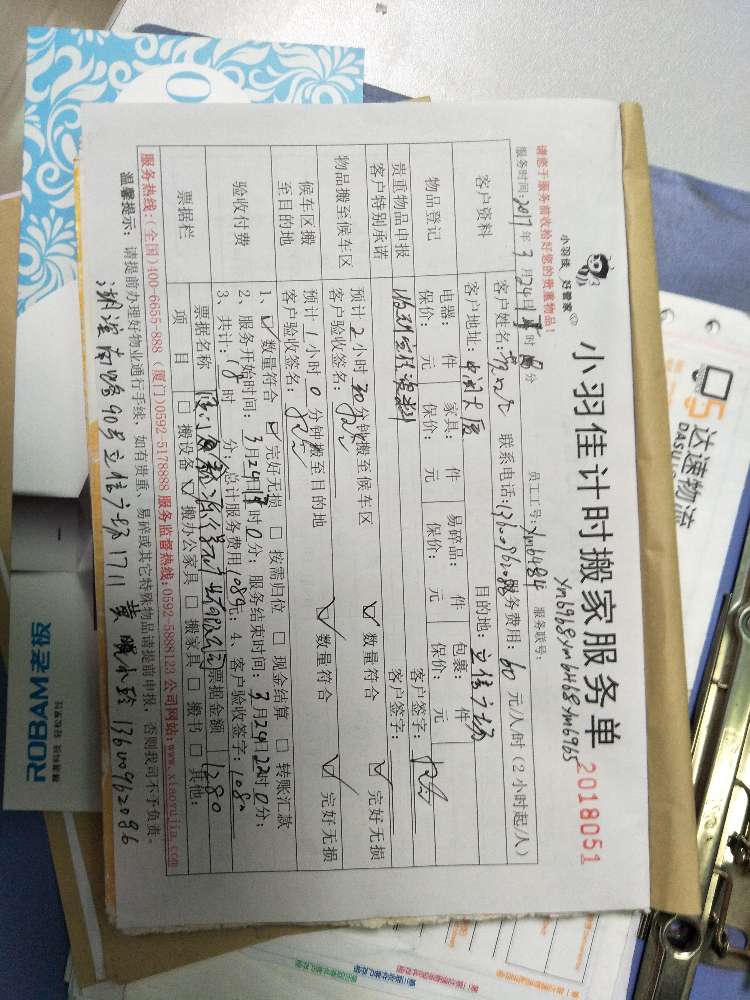 小羽佳计时搬家服务单
2018051
小羽佳 好管家
请您于服务前收拾好您的贵重物品！
员工工号：xm6484 服务联号：
xm6968 xm6468 xm6965
服务时间：2017年3月24日 时 分
客户资料
客户姓名： 联系电话： 服务费用：60元/人/时（2小时起/人）
客户地址：中闽大厦 目的地：立信广场
物品登记
电器： 件 家具： 件 易碎品： 件 包裹： 件
保价： 元 保价： 元 保价： 元 保价： 元
贵重物品申报
客户签字：
客户特别承诺
客户签字：
物品搬至候车区
预计2小时30分钟搬至候车区 ☑ 数量符合 ☑ 完好无损
客户验收签名：
候车区搬至目的地
预计1小时0分钟搬至目的地 ☑ 数量符合 ☑ 完好无损
客户验收签名：
验收付费
1、☑ 数量符合 ☑ 完好无损 □ 按需归位 □ 现金结算 □ 转账汇款
2、服务开始时间：3月24日 时0分；服务结束时间：3月24日22时0分；
3、共计：18时 分；总计服务费用1080元；4、客户验收签字：1080
票据栏
票据名称 票据金额 1280
项 目 □ 搬设备 ☑ 搬办公家具 □ 搬家具 □ 搬书 □ 其他：
服务热线：（全国）400-6655-888（厦门）0592-5178888 服务监督热线：0592-5888123 公司网站：www.xiaoyujia.com
温馨提示：请提前办理好物业通行手续，如有贵重、易碎或其它特殊物品请提前申报，否则我司不予负责。
湖滨南路90号立信广场1711 黄 小玲 13600962086
ROBAM老板
精湛科技 轻松烹饪
达速物流
DASU